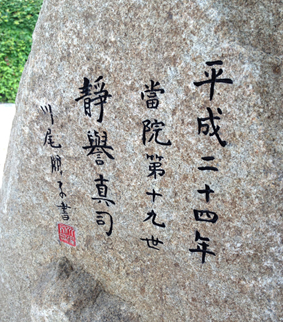 平成二十四年
當院第十九世
靜譽真司
川尾朋子書